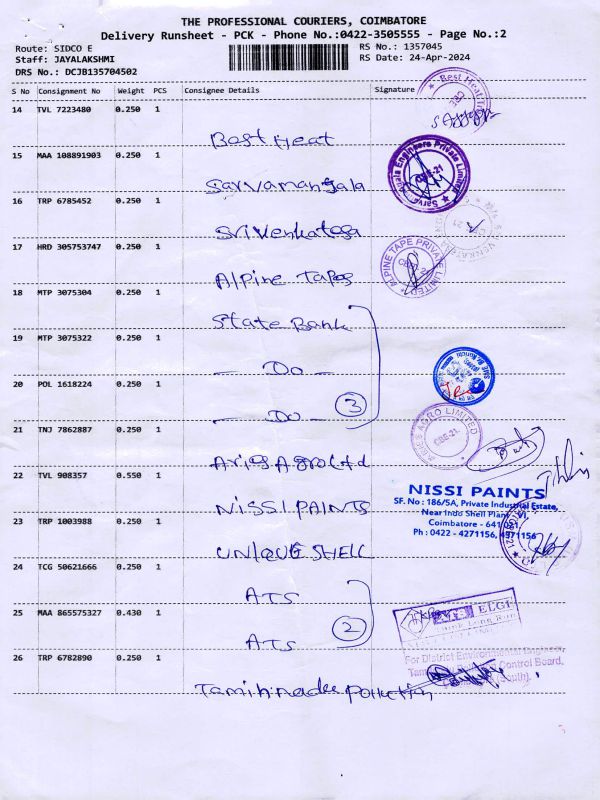 THE PROFESSIONAL COURIERS, COIMBATORE
Delivery Runsheet - PCK - Phone No.:0422-3505555 - Page No.:2
Route: SIDCO E
RS No.: 1357045
Staff: JAYALAKSHMI
RS Date: 24-Apr-2024
DRS No.: DCJB135704502
S No Consignment No Weight PCS Consignee Details Signature
14 TVL 7223480 0.250 1
Best Heat
15 MAA 108891903 0.250 1
Sarvamangala
16 TRP 6785452 0.250 1
Sri Venkatesa
17 HRD 305753747 0.250 1
Alpine Tapes
ALPINE TAPE PRIVATE LIMITED
18 MTP 3075304 0.250 1
State Bank
19 MTP 3075322 0.250 1
— Do —
20 POL 1618224 0.250 1
— Do — 3
21 TNJ 7862887 0.250 1
AGRO LIMITED
CBE-21
Aries Agro Ltd
22 TVL 908357 0.550 1
NISSI PAINTS
NISSI PAINTS
SF. No : 186/5A, Private Industrial Estate,
Near Indo Shell Plant - VI,
Coimbatore - 641 021
Ph : 0422 - 4271156, 4971156
23 TRP 1003988 0.250 1
UNIQUE SHELL
24 TCG 50621666 0.250 1
ATS
25 MAA 865575327 0.430 1
2
ATS
ELGI
26 TRP 6782890 0.250 1
For District Environmental Engineer,
Control Board,
(South).
Tamilnadu Pollution